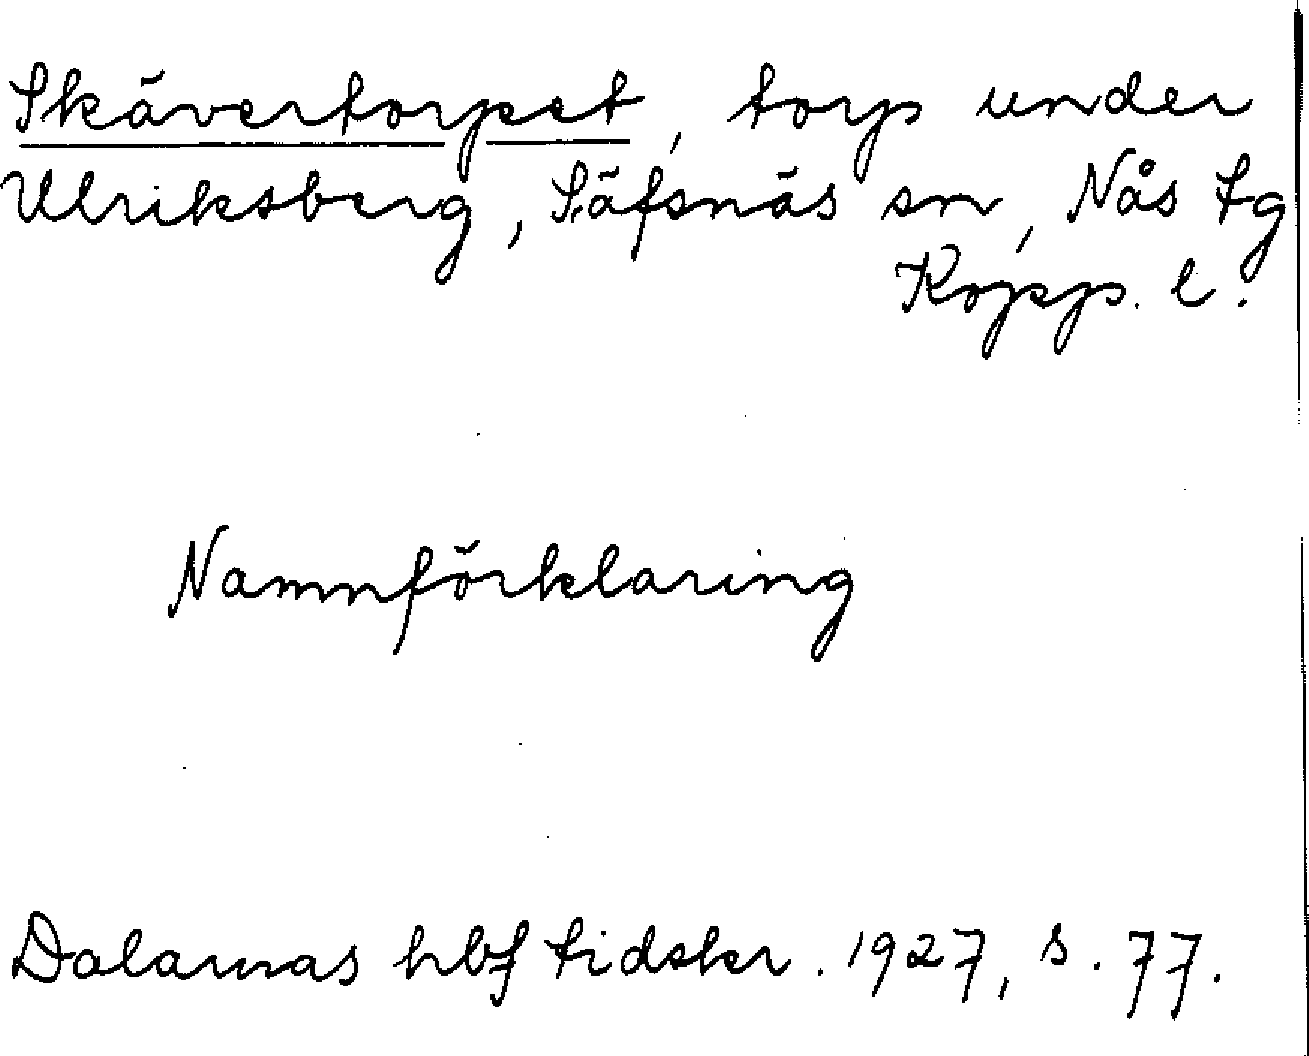 Skävertorpet, torp under
Ulriksberg, Säfsnäs sn, Nås tg
Kopp. l.
Namnförklaring
Dalarnas hbf tidskr. 1927, s. 77.